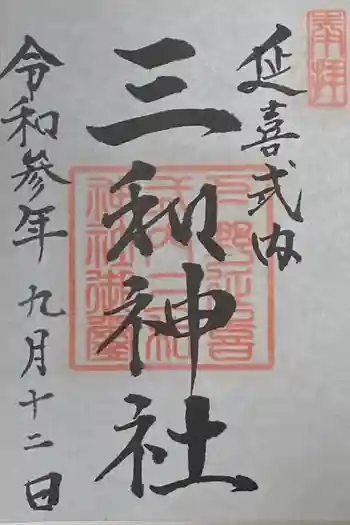 奉拝
延喜式内
三和神社
令和参年九月十二日